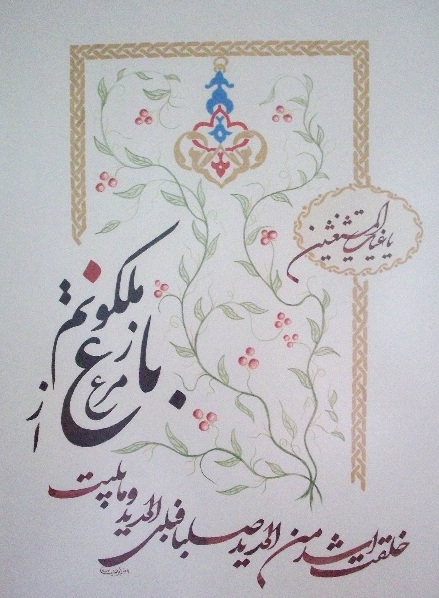 یا غیاث المستغیثین
مرغ باغ ملکوتم
خلقت اشد من الحدید صلبا فبلی الحدید و ما بلیت